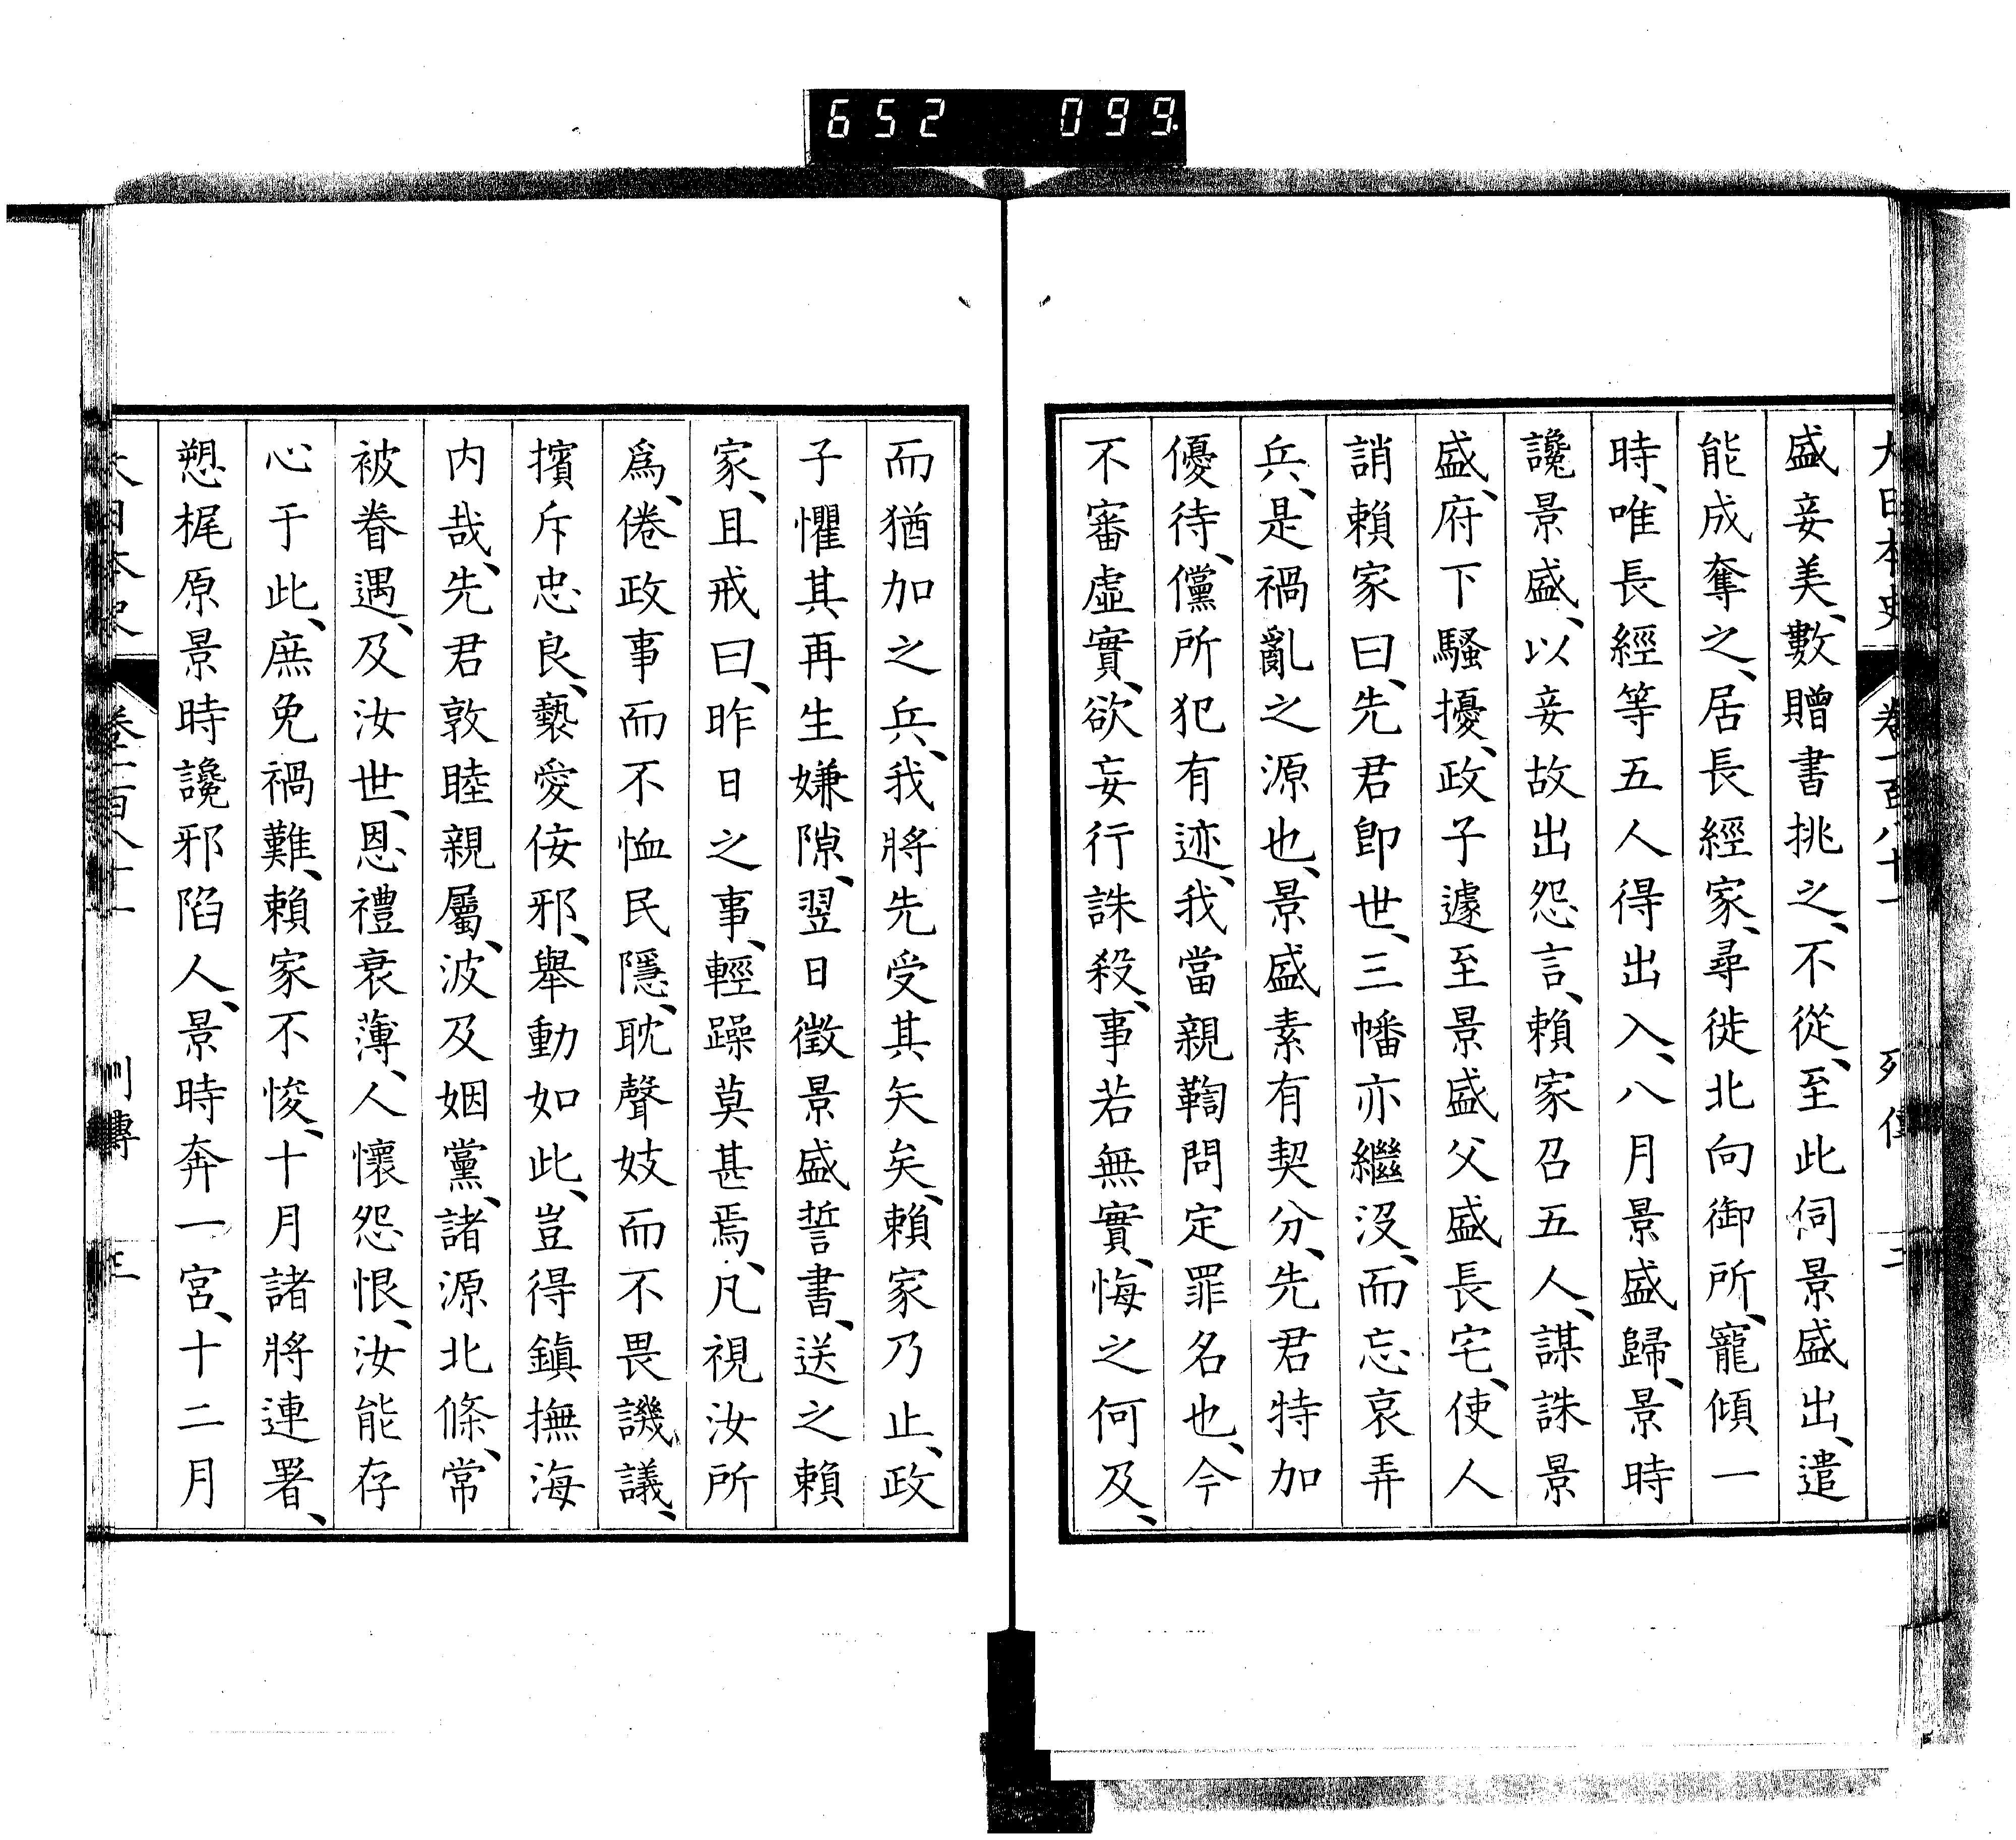 652 099
大日本史 卷一百八十一 列傳 二
盛妾美、數贈書挑之、不從、至此伺景盛出、遣
能成奪之、居長經家、尋徙北向御所、寵傾一
時、唯長經等五人得出入、八月景盛歸、景時
讒景盛、以妾故出怨言、賴家召五人、謀誅景
盛、府下騷擾、政子遽至景盛父盛長宅、使人
誚賴家曰、先君卽世、三幡亦繼沒、而忘哀弄
兵、是禍亂之源也、景盛素有契分、先君特加
優待、儻所犯有迹、我當親鞫問定罪名也、今
不審虛實、欲妄行誅殺、事若無實、悔之何及、
而猶加之兵、我將先受其矢矣、賴家乃止、政
子懼其再生嫌隙、翌日徵景盛誓書、送之賴
家、且戒曰、昨日之事、輕躁莫甚焉、凡視汝所
爲、倦政事而不恤民隱、耽聲妓而不畏譏議、
擯斥忠良、褻愛侫邪、舉動如此、豈得鎭撫海
内哉、先君敦睦親屬、波及姻黨、諸源北條、常
被眷遇、及汝世、恩禮衰薄、人懷怨恨、汝能存
心于此、庶免禍難、賴家不悛、十月諸將連署、
愬梶原景時讒邪陷人、景時奔一宮、十二月
大日本史 卷一百八十一 列傳 三